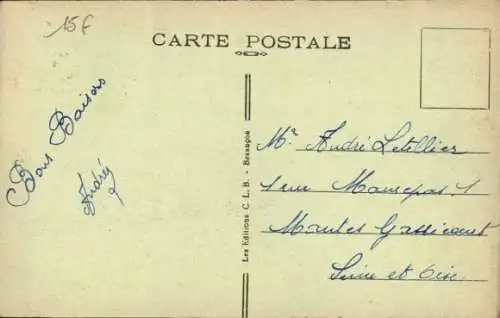 15 F
CARTE POSTALE
Bons Baisers
André
Les Editions C. L. B. - Besançon
Mr André Letellier
1 rue Maurepas 1
Mantes Gassicourt
Seine et Oise